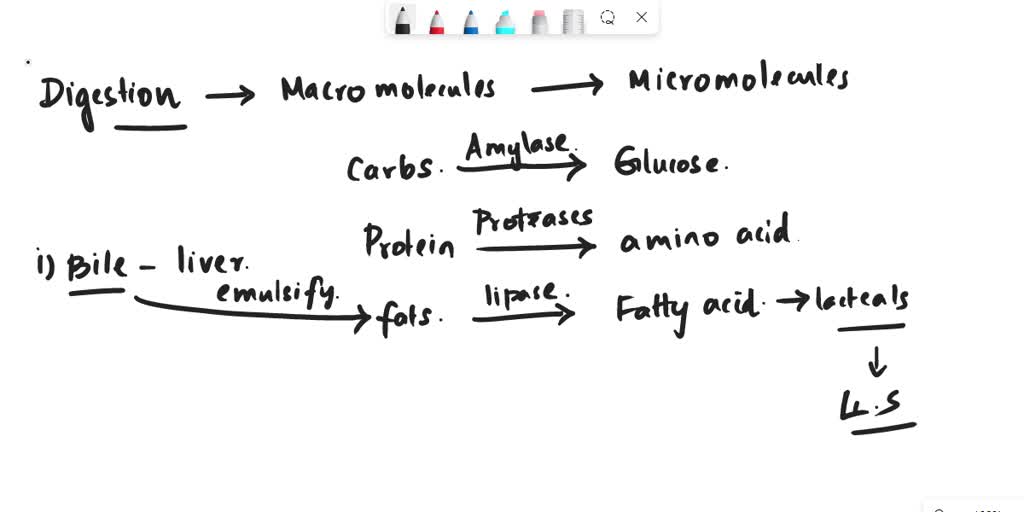 Digestion → Macromolecules → Micromolecules
Carbs. Amylase. → Glucose.
Protein Proteases → amino acid.
i) Bile - liver.
emulsify. → fats. lipase. → Fatty acid. → lacteals
↓
L.S